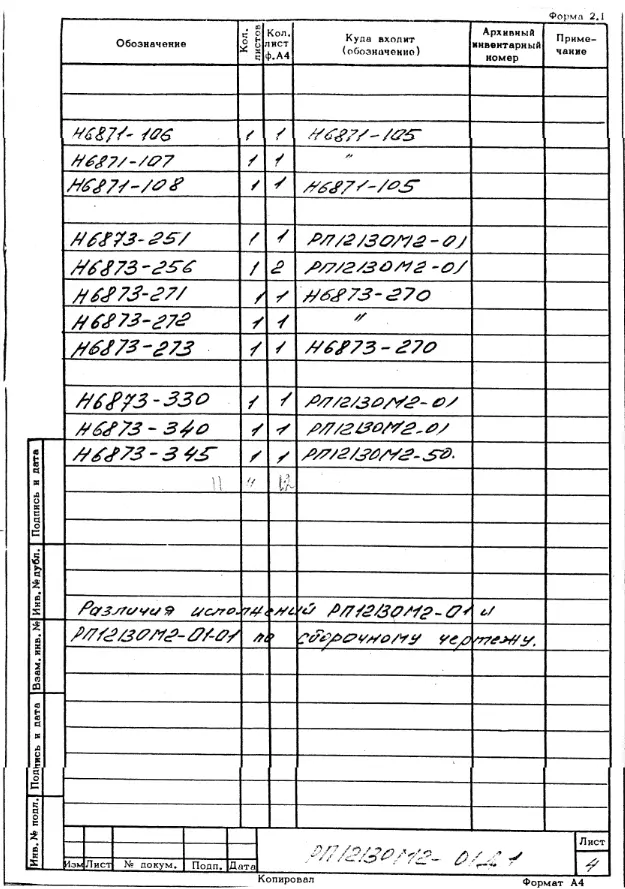 Форма 2.1
Обозначение Кол. листов Кол. лист ф.А4 Куда входит (обозначение) Архивный инвентарный номер Приме-чание
Н6871-106 1 1 Н6871-105
Н6871-107 1 1 "
Н6871-108 1 1 Н6871-105
Н6873-251 1 1 РП12130М2-01
Н6873-256 1 2 РП12130М2-01
Н6873-271 1 1 Н6873-270
Н6873-272 1 1 "
Н6873-273 1 1 Н6873-270
Н6873-330 1 1 РП12130М2-01
Н6873-340 1 1 РП12130М2-01
Н6873-345 1 1 РП12130М2-50.
11 12
Различия исполнений РП12130М2-01 и
РП12130М2-01-01 по сборочному чертежу.
Подпись и дата
Инв. № дубл.
Взам. инв. №
Подпись и дата
Инв. № подл.
Изм Лист № докум. Подп. Дата
РП12130М2-01Д1
Лист
4
Копировал Формат А4